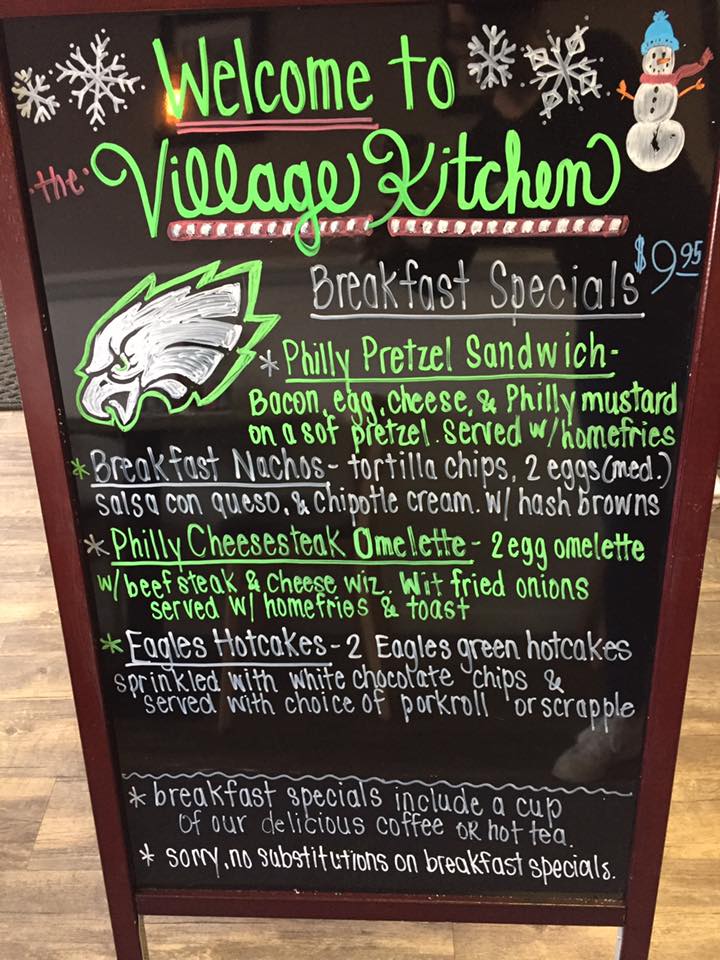 Welcome to
the Village Kitchen
$9.95
Breakfast Specials
* Philly Pretzel Sandwich-
Bacon, egg, cheese, & Philly mustard
on a sof pretzel. served w/homefries
* Breakfast Nachos- tortilla chips, 2 eggs (med.)
salsa con queso, & chipotle cream. w/ hash browns
* Philly Cheesesteak Omelette- 2 egg omelette
w/beef steak & cheese wiz. Wit fried onions
served w/ homefries & toast
* Eagles Hotcakes- 2 Eagles green hotcakes
sprinkled with white chocolate chips &
served with choice of porkroll or scrapple
* breakfast specials include a cup
of our delicious coffee or hot tea.
* sorry, no substitutions on breakfast specials.